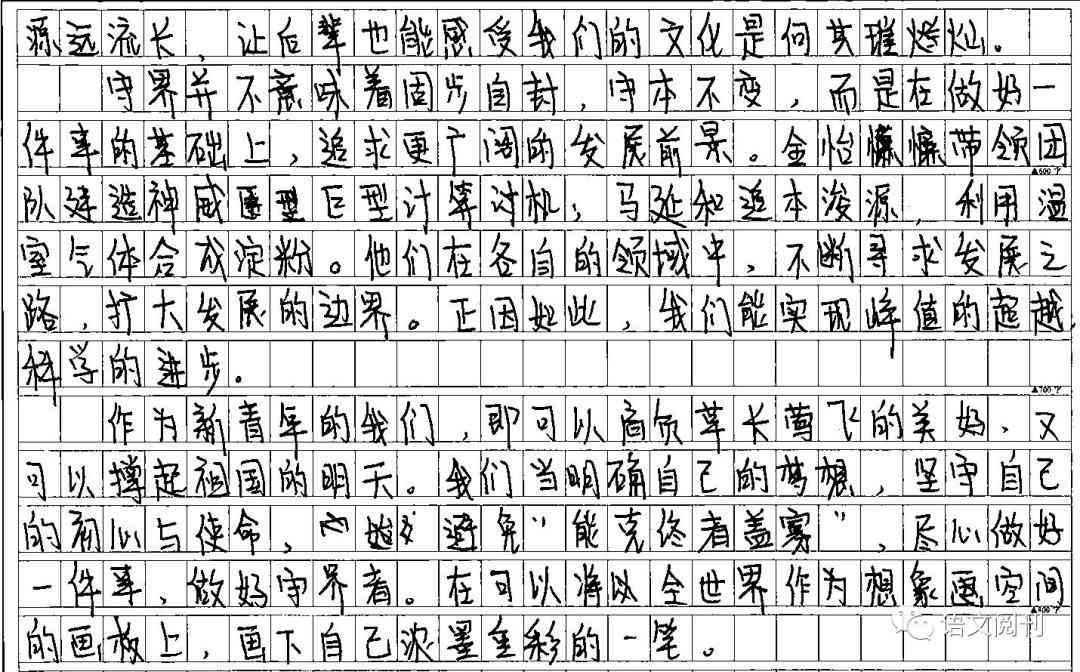 源远流长，让后辈也能感受我们的文化是何其璀灿。
守界并不意味着固步自封，守本不变，而是在做好一
件事的基础上，追求更广阔的发展前景。金怡濂濂带领团
▲600字
队建造神威巨型计算讨机；马延和追本浚源，利用温
室气体合成淀粉。他们在各自的领域中，不断寻求发展之
路，扩大发展的边界。正因如此，我们能实现峰值的超越，
科学的进步。
▲700字
作为新青年的我们，即可以肩负草长莺飞的美好，又
可以撑起祖国的明天。我们当明确自己的梦想，坚守自己
的初心与使命，避免"能克终者盖寡"，尽心做好
一件事，做好守界者。在可以将以全世界作为想象画空间
▲800字
的画板上，画下自己浓墨重彩的一笔。
语文阅刊